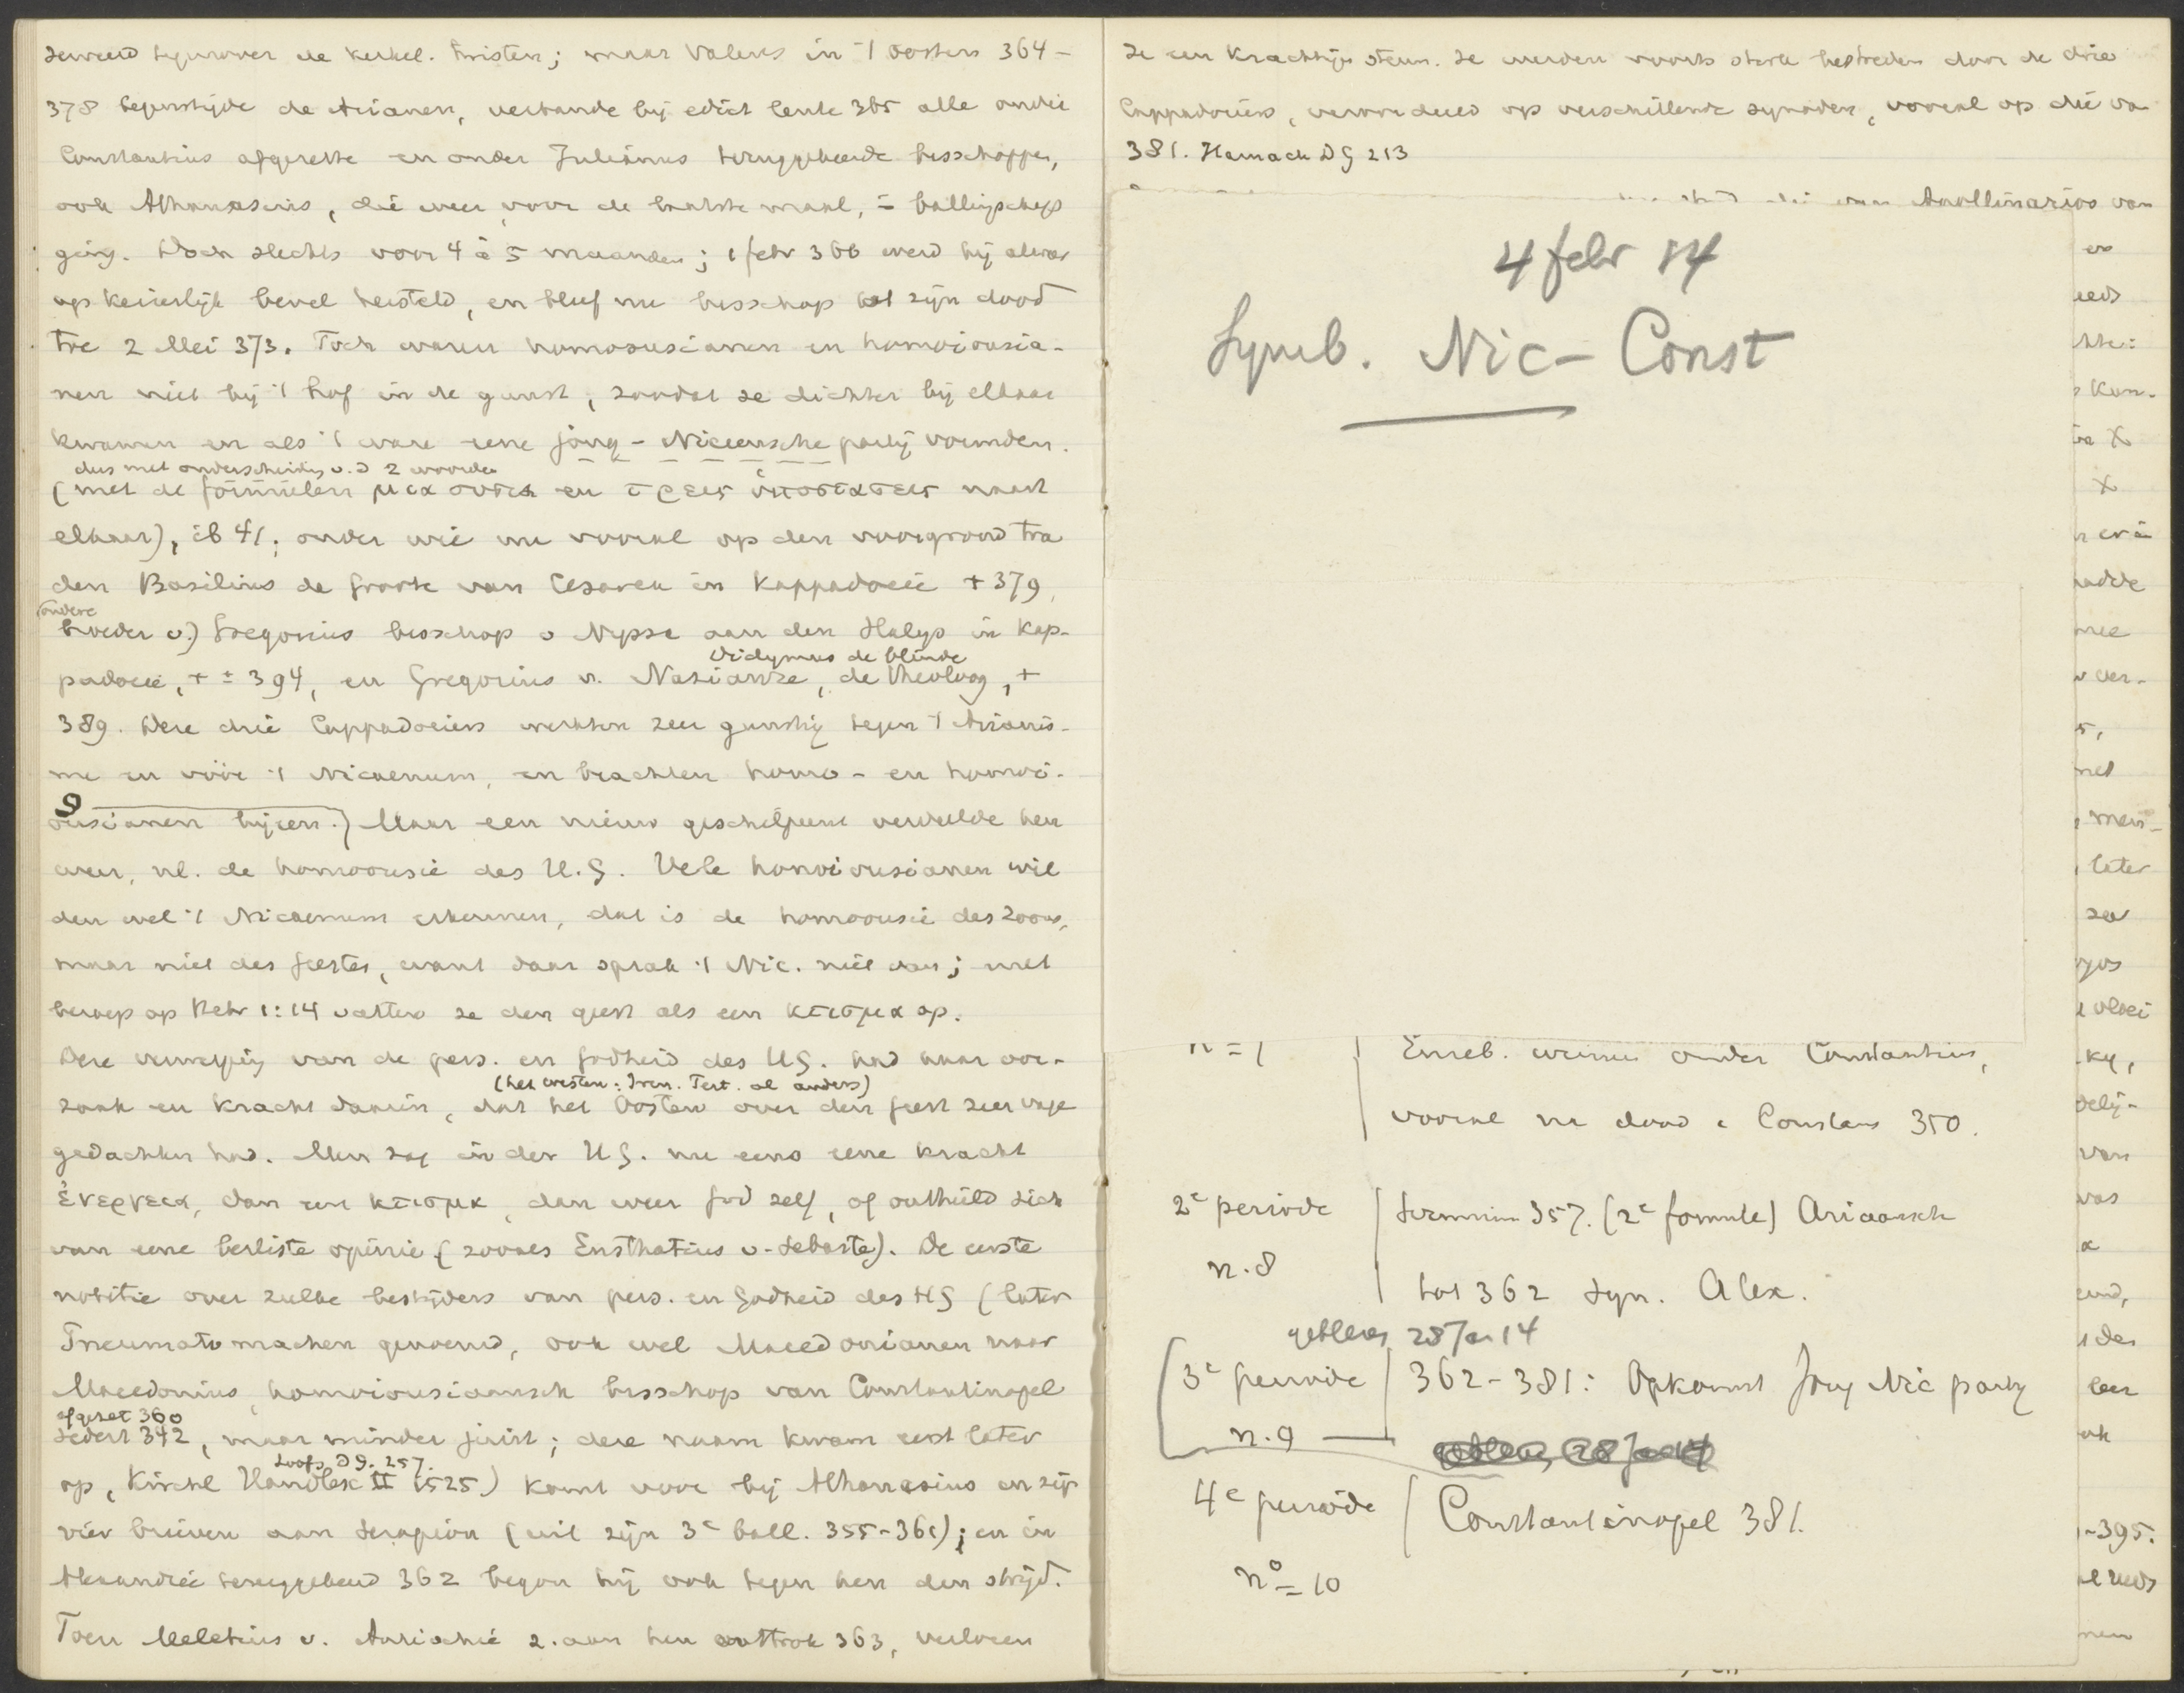 tegenover de kerkel. twisten; maar Valens in 't oosten 364-
378 begunstigde de Arianen, verbande bij edict lente 365 alle onder
Constantius afgezette en onder Julianus teruggekeerde bisschoppen,
ook Athanasius, die weer, voor de laatste maal, in ballingschap
ging. Doch slechts voor 4 à 5 maanden; 1 febr 366 werd hij alweer
op keizerlijk bevel hersteld, en bleef nu bisschop tot zijn dood
toe 2 Mei 373. Toch waren homoousianen en homoiousia-
nen niet bij 't hof in de gunst, zoodat ze dichter bij elkaar
kwamen en als 't ware eene jong-Niceensche partij vormden.
dus met onderscheiding v. d 2 woorden
(met de formulen μια ουσια en τρεις ὑποστασεις naast
elkaar), ib 41; onder wie nu vooral op den voorgrond tra
den Basilius de Groote van Cesarea in Kappadocië + 379,
(andere
broeder v.) Gregorius bisschop v Nyssa aan den Halys in Kap-
Didymus de blinde
padocië, + ± 394, en Gregorius v. Nazianze, de theoloog, +
389. Deze drie Cappadociers werkten zeer gunstig tegen 't Arianis-
me en vóór 't Nicaenum, en brachten homo- en homoi-
9
ousianen bijeen.) Maar een nieuw geschilpunt verdeelde hen
weer, nl. de homoousie des H.G. Vele homoiousianen wil
den wel 't Nicaenum erkennen, dat is de homoousie des Zoons,
maar niet des Geestes, want daar sprak 't Nic. niet van; met
beroep op Hebr 1:14 vatten ze den geest als een κτισμα op.
Deze verwerping van de pers. en Godheid des HG. had haar oor-
(het westen: Iren. Tert. al anders)
zaak en kracht daarin, dat het Oosten over den Geest zeer vage
gedachten had. Men zag in den HG. nu eens eene kracht
ἐνεργεια, dan een κτισμα, dan weer God zelf, of onthield zich
van eene besliste opinie (zooals Eusthatius v. Sebaste). De eerste
notitie over zulke bestrijders van pers. en Godheid des HG (later
Pneumatomachen genoemd, ook wel Macedonianen naar
Macedonius, homoiousiaansch bisschop van Constantinopel
afgezet 360
sedert 342, maar minder juist; deze naam kwam eerst later
Loofs DG. 257.
op, Kirchl Handlex II 1525) komt voor bij Athanasius in zijn
vier brieven aan Serapion (uit zijn 3e ball. 355-361); en in
Alexandrië teruggekeerd 362 begon hij ook tegen hen den strijd.
Toen Meletius v. Antiochië z. aan hen onttrok 363, verloren
ze een krachtige steun. Ze werden voorts sterk bestreden door de drie
Cappadociers, veroordeeld op verschillende synoden, vooral op die van
381. Harnack DG 213
Apollinarios van
4 febr 14
Symb. Nic-Const
en
kon-
X
X
hadde
mee
ver-
5,
met
men-
later
zou
vloei
delij-
van
was
α
des
leer
ook
-395.
reeds
men
n=1
Euseb. winnen onder Constantius,
vooral na dood v Constans 350.
2e periode
Sirmium 357. (2e formule) Ariaansch
n. 8
tot 362 Syn. Alex.
gebleven 28 Jan 14
3e periode
362-381: Opkomst Jong Nic partij
n. 9
4e periode
Constantinopel 381.
no = 10